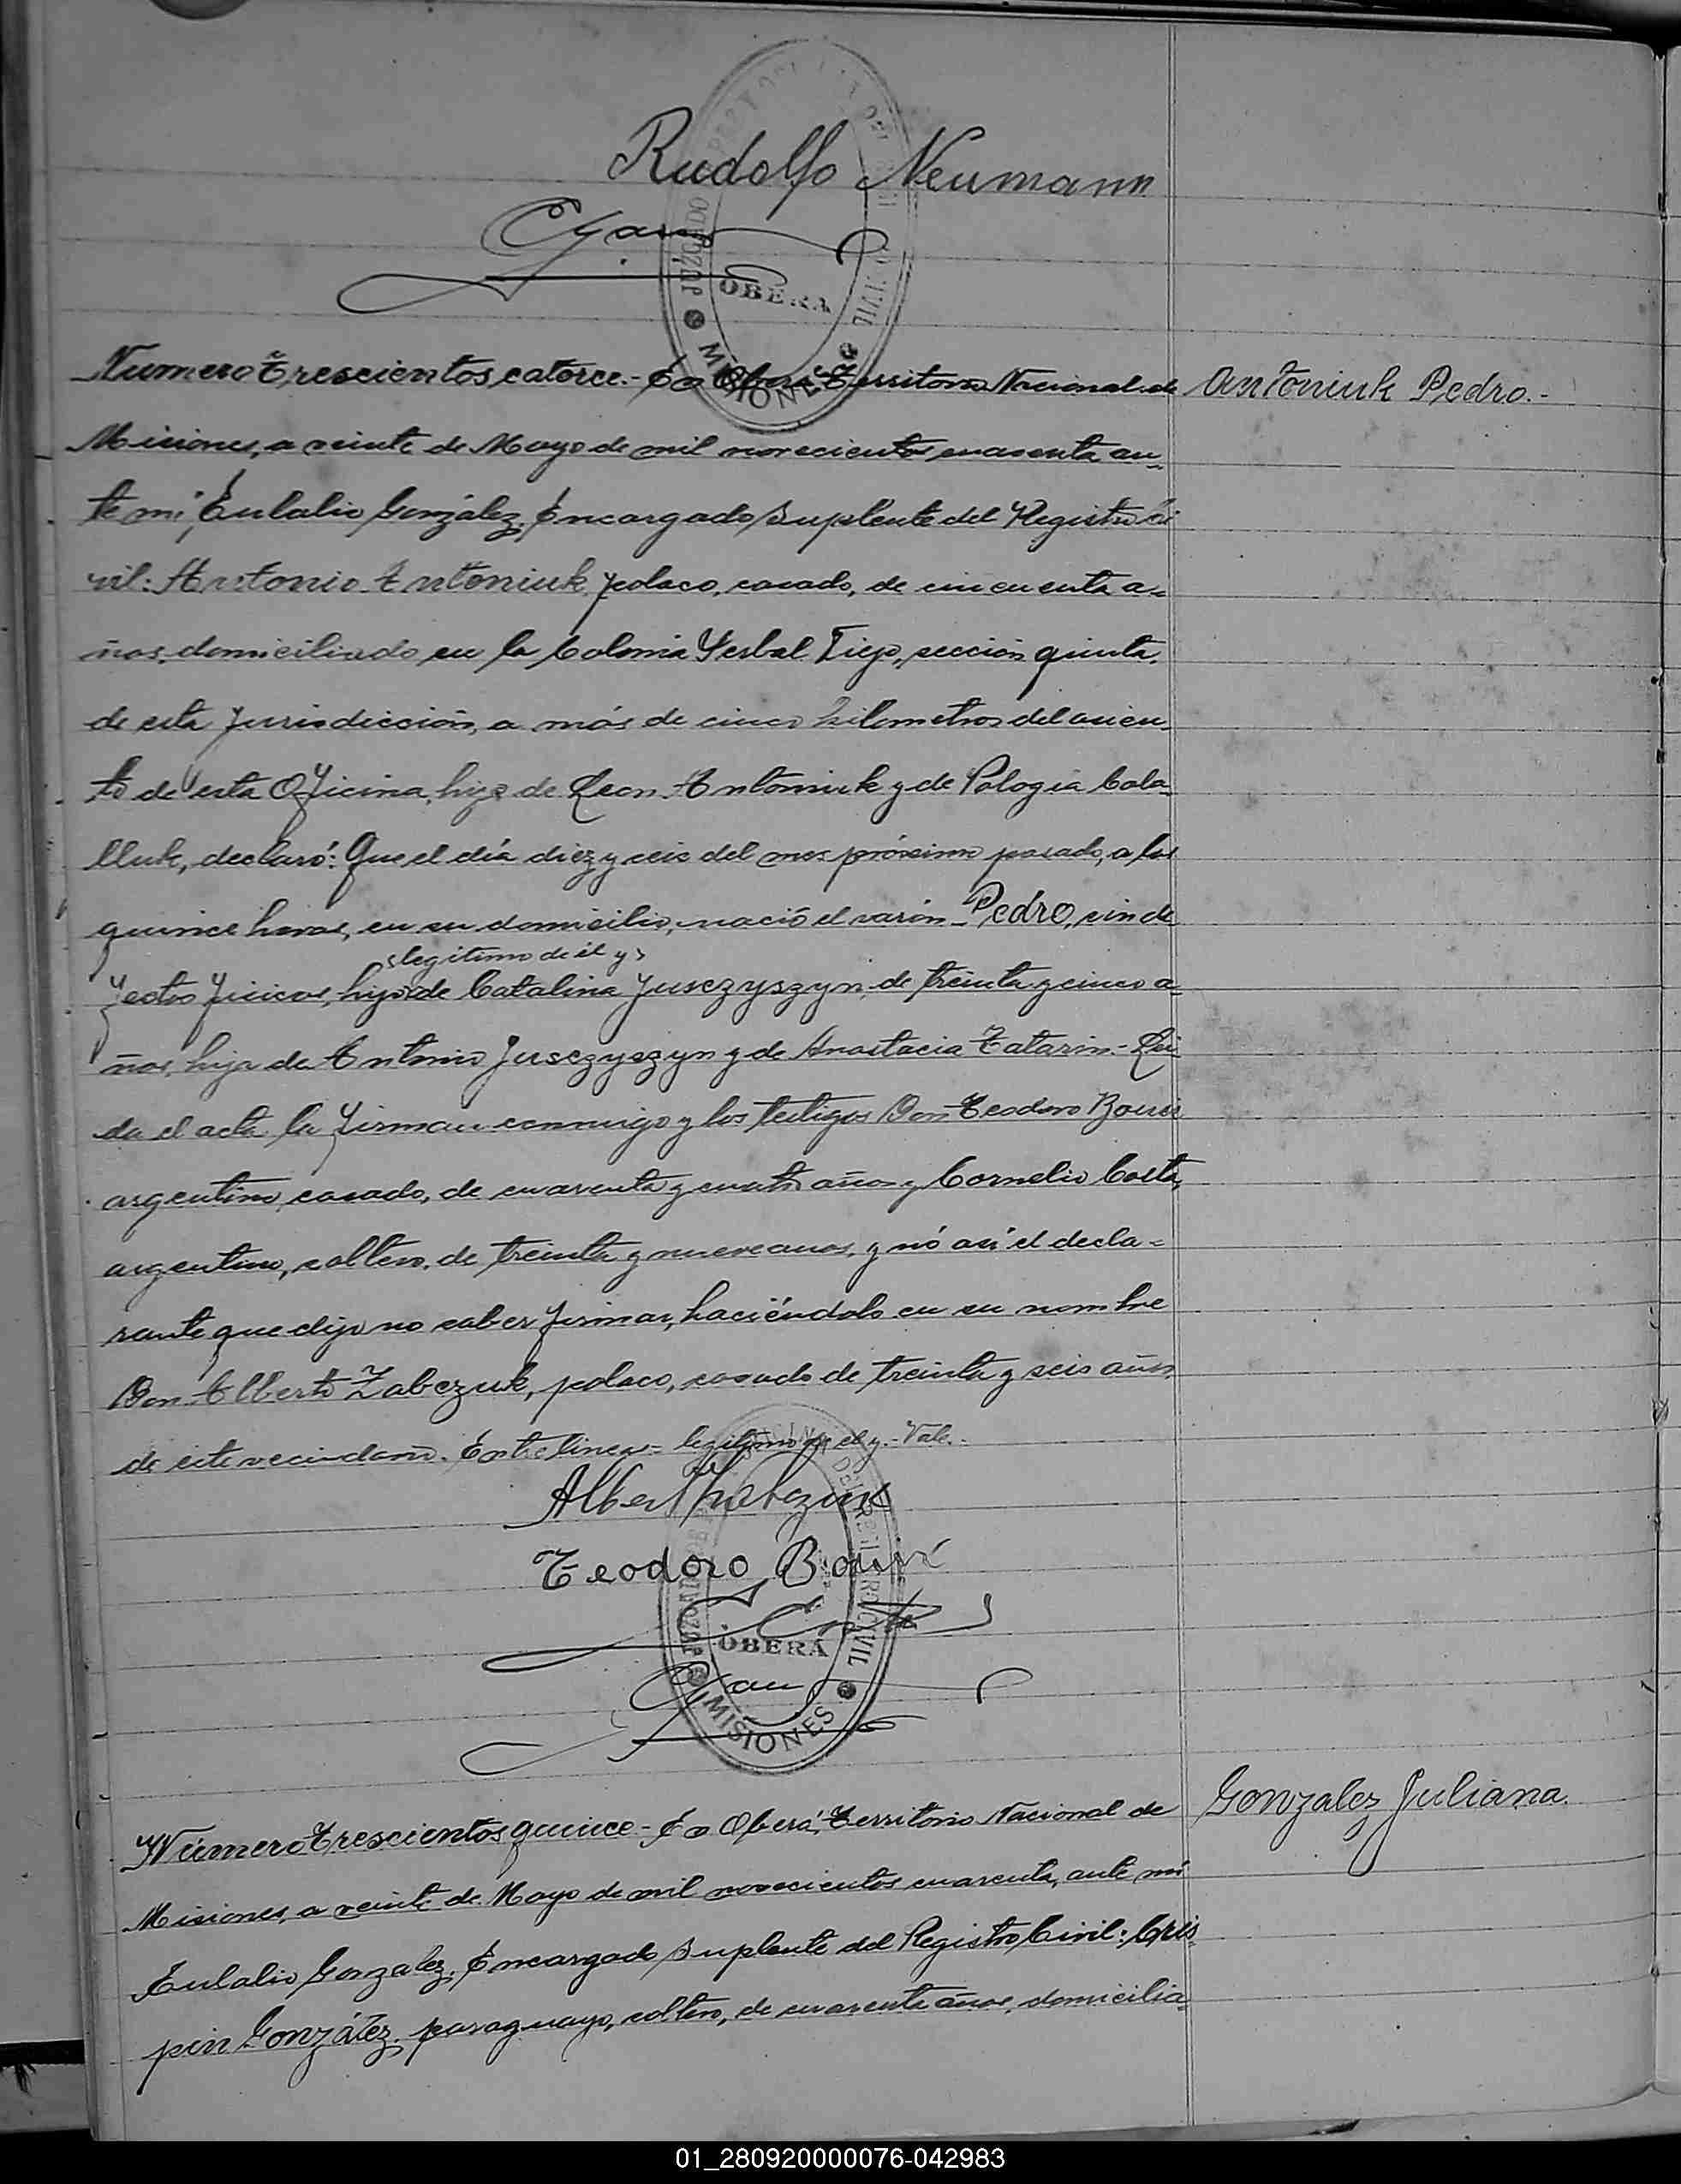 Rudolfo Neumann
OBERA
MISIONES
Numero trescientos catorce.- En Oberá, Territorio Nacional de
Antoniuk Pedro.-
Misiones, a veinte de Mayo de mil novecientos cuarenta an-
te mi, Eulalio González, Encargado Suplente del Registro Ci
vil: Antonio Antoniuk, polaco, casado, de cincuenta a-
ños, domiciliado en la Colonia Yerbal Viejo, sección quinta,
de esta jurisdicción, a más de cinco kilometros del asien-
to de esta Oficina, hijo de Leon Antoniuk y de Pologia Cola-
lluk, declaró: Que el día diez y seis del mes próximo pasado, a las
quince horas, en su domicilio, nació el varón Pedro, sin de
<legitimo de él y>
fectos fisicos, hijo de Catalina Jusczyszyn, de treinta y cinco a-
ños, hija de Antonio Jusczyszyn y de Anastacia Tatarin.- Lei
da el acta la firman conmigo y los testigos Don Teodoro
argentino, casado, de cuarenta y cuatro años y Cornelio Costa,
argentino, soltero, de treinta y nueve anos, y nó así el decla-
rante que dijo no saber firmar, haciéndolo en su nombre
Don Alberto Zabczuk, polaco, casado de treinta y seis años,
de este vecindario. Entre lineas= legitimo de el y.- Vale.-
Teodoro
OBERÁ
MISIONES
Número trescientos quince- En Oberá, Territorio Nacional de
Gonzalez Juliana.
Misiones, a veinte de Mayo de mil novecientos cuarenta, ante mí
Eulalio Gonzalez, Encargado Suplente del Registro Civil: Cris-
pin González, paraguayo, soltero, de cuarenta años, domicilia-
01_280920000076-042983